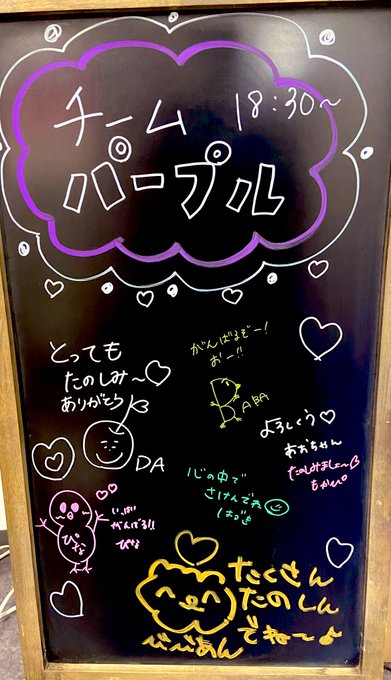 チーム 18:30～
パープル
とっても
たのしみ～♡
ありがとう
DA
がんばるぞー!
おー!!
BABA
よろしくぅ♡
あおちゃん
たのしみましょ～
もかぴ
心の中で
さけんでね
いっぱい
がんばる!!
ぴな
ぴな
たくさん
たのしん
でね～♪
びびあん